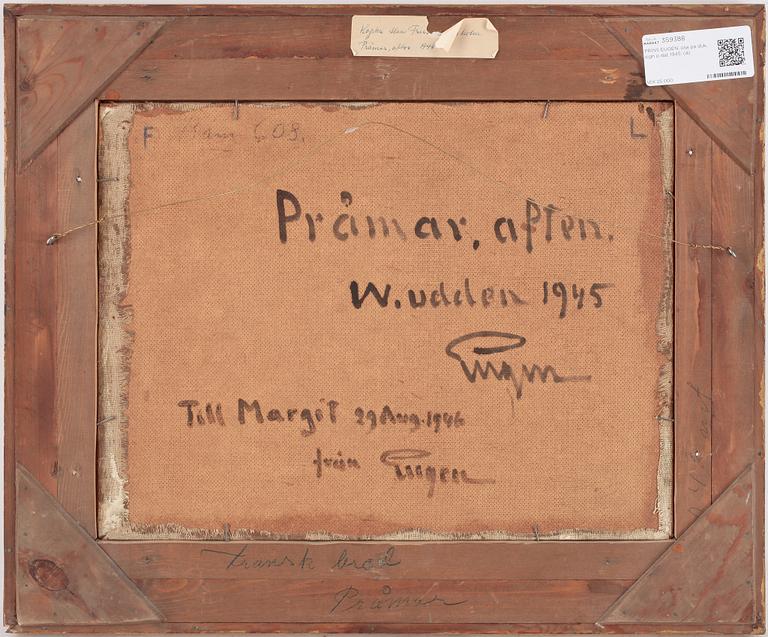 Kopia
Pråmar, afton 1946
359388
PRINS EUGEN, olja på duk,
sign o dat 1945. (d)
SEK 25 000
F L
Pråmar, aften.
W.udden 1945
Eugen
Till Margit 29 Aug. 1946
från Eugen
Pråmar